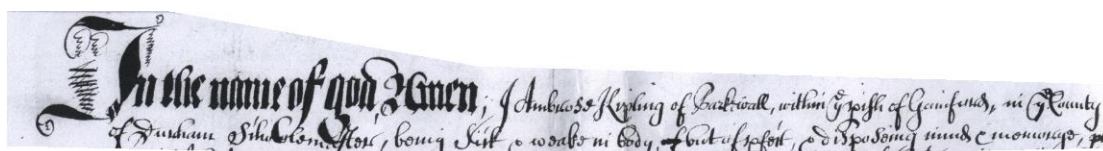 In the name of god, Amen, I Ambrose Kipling of Barkwall, within yᵉ pish of Gainford, in yᵉ County
of Durham Schoolemaster, being sick & weake in body, but of pfect, & disposeing minde & memorye,